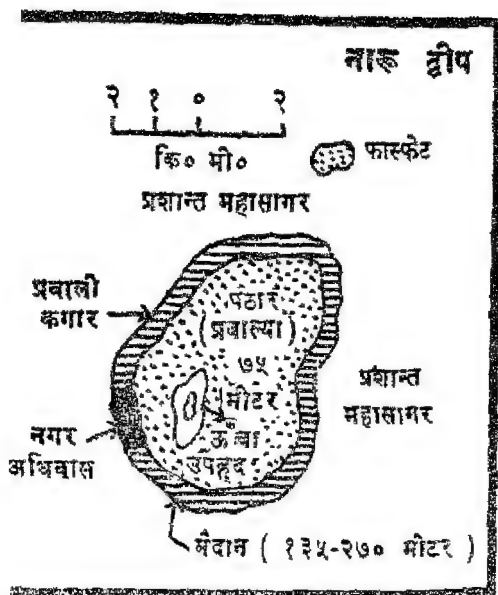 नारू द्वीप
२ १ ० २
कि० मी०
फास्फेट
प्रशान्त महासागर
प्रवाली
कगार
पठार
(प्रवाल्या)
७५
मीटर
ऊंचा
उपह्रद
प्रशान्त
महासागर
नगर
अधिवास
मैदान ( १३५-२७० मीटर )